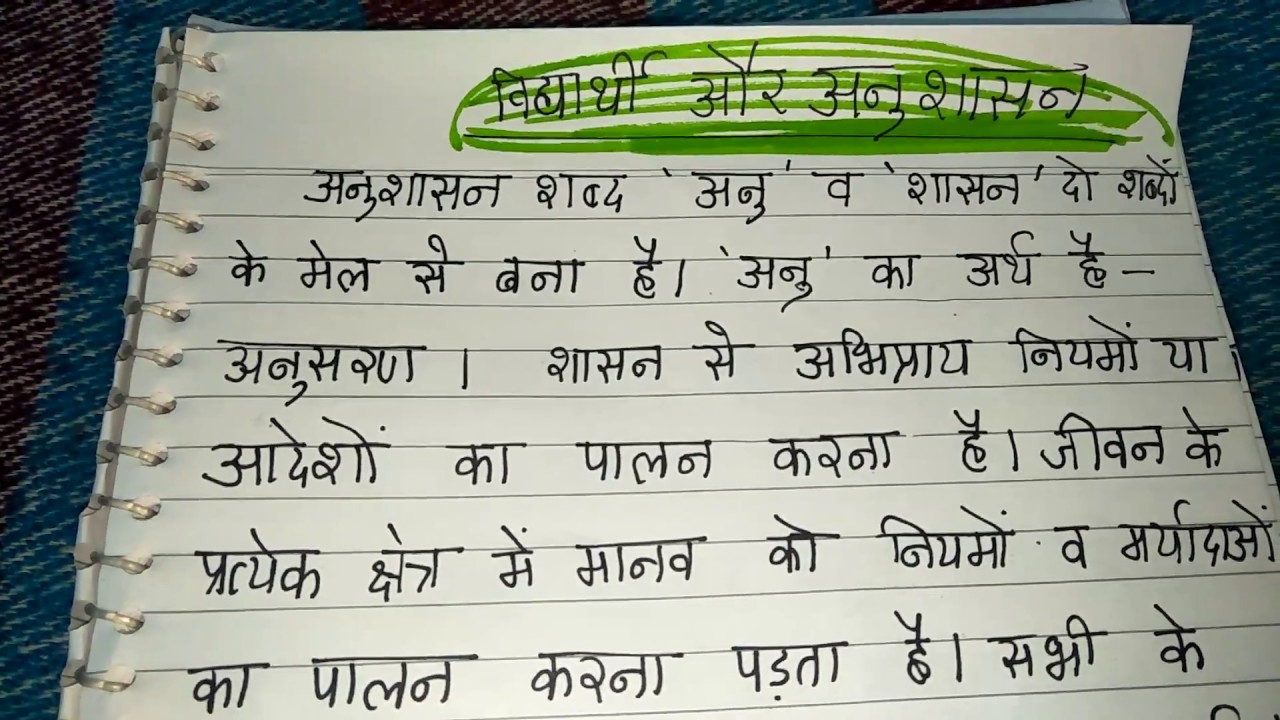 विद्यार्थी और अनुशासन
अनुशासन शब्द 'अनु' व 'शासन' दो शब्दों
के मेल से बना है। 'अनु' का अर्थ है –
अनुसरण । शासन से अभिप्राय नियमों या
आदेशों का पालन करना है। जीवन के
प्रत्येक क्षेत्र में मानव को नियमों व मर्यादाओं
का पालन करना पड़ता है। सभी के